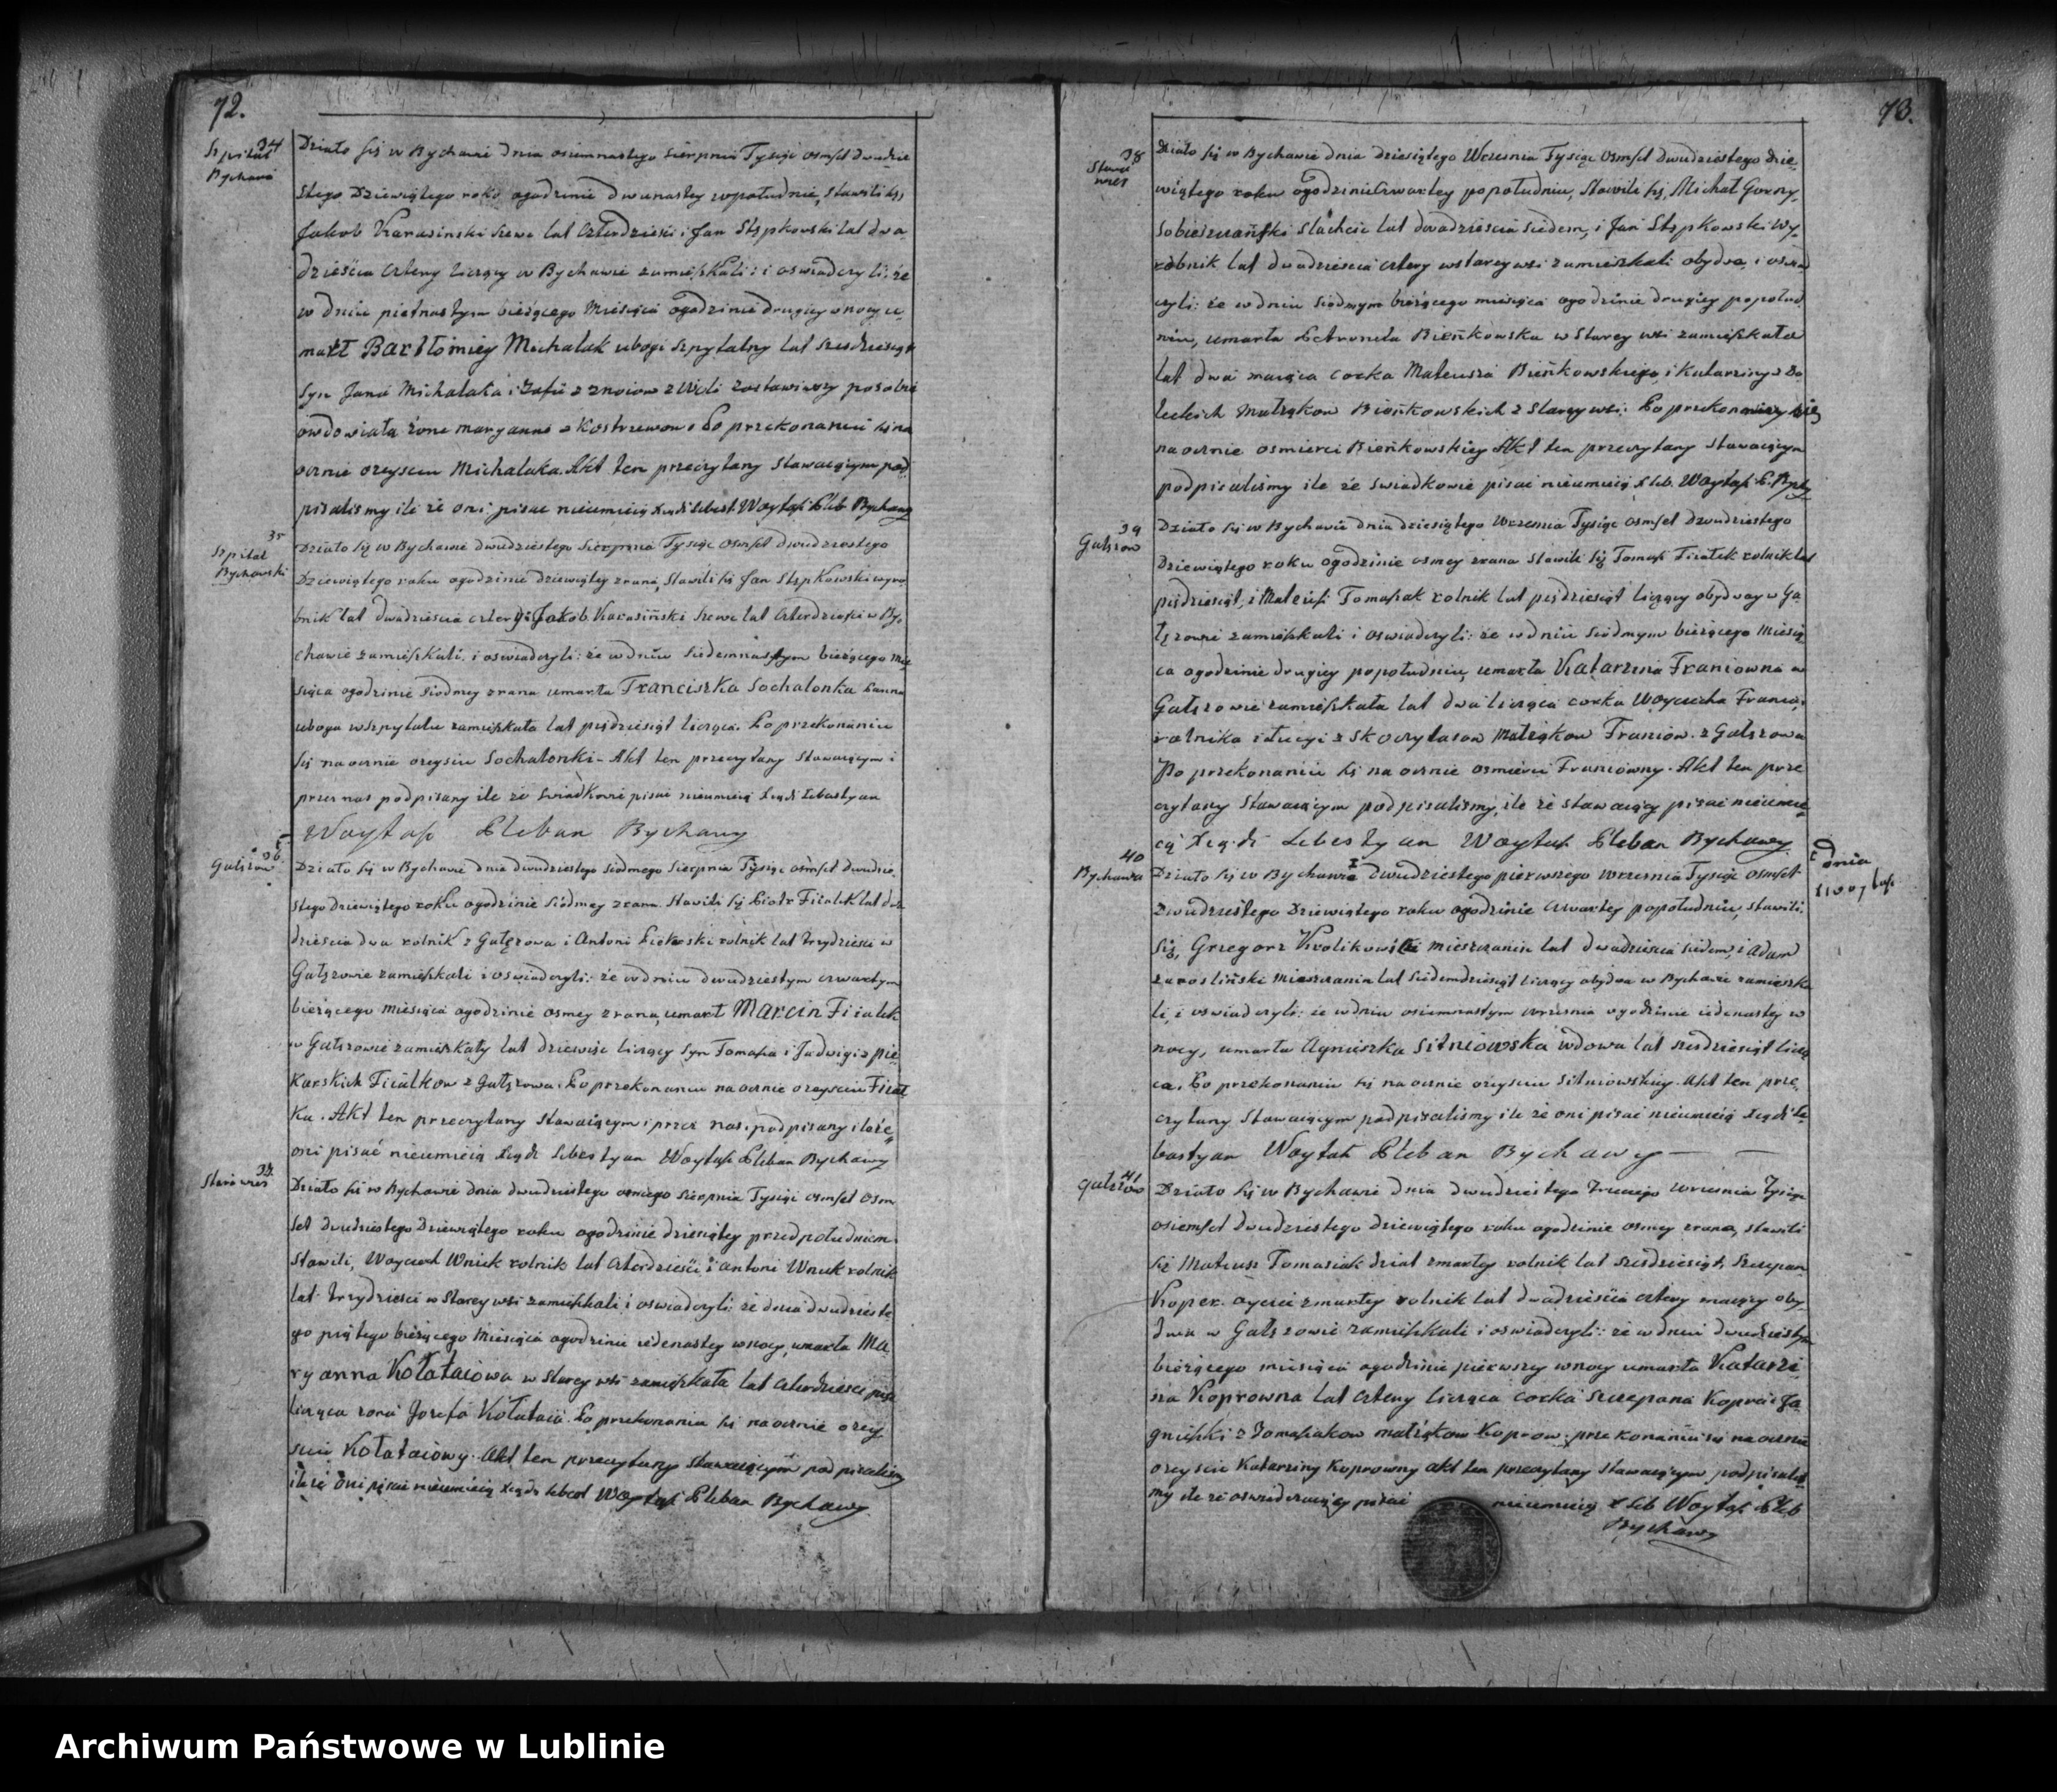 72.
34
Szpital
Bychawa
Działo się w Bychawie dnia osiemnastego Sierpnia Tysiąc osmset dwudzie
stego Dziewiątego roku ogodzinie dwunastey wpołudnie, stawili się,
Jakob Karasinski szewc lat czterdzieści i Jan Stępkowski lat dwa-
dzieścia cztery liczący w Bychawie zamieszkali: i oswiadczyli: że
w dniu piętnastym bieżącego Miesiąca ogodzinie drugiey wnocy u-
marł Bartłomiey Michalak ubogi szpytalny lat szesdziesiąt
syn Jana Michalaka i Zofii z zostawiwszy posobie
owdowiałą żonę maryannę z Kostrzewow. Po przekonaniu się na
ocznie o zeysciu Michalaka. Akt ten przeczytany stawaiącym pod
pisalismy ile że oni pisac nieumieią Xiądz Sebast: Woytaś Pleb Bychawy
35
Szpital
Bychawski
Działo się w Bychawie dwudziestego Sierpnia Tysiąc osmset dwudziestego
Dziewiątego roku ogodzinie dziewiątey zrana, stawili się Jan Stępkowski wyro
bnik lat dwadzieścia cztery i Jakob Karasiński szewc lat czterdzieści w By-
chawie zamieszkali, i oswiadczyli: że w dniu siedemnastym bieżącego mie
siąca ogodzinie siodmey zrana umarła Franciszka Sochalonka Panna
uboga wszpytalu zamieszkała lat piędziesiąt licząca. Po przekonaniu
się na ocznie ozeysciu Sochalonki - Akt ten przeczytany stawaiącym i
przez nas podpisany ile że świadkowie pisać nieumieią Xiądz Sebastyan
Woytaś Pleban Bychawy
36
Gałęzow
Działo się w Bychawie dnia dwudziestego siodmego Sierpnia Tysiąc osmset dwudzie
stego dziewiątego roku ogodzinie siodmey zrana. stawili się Piotr Fiiałek lat dwa-
dzieścia dwa rolnik z Gałęzowa i Antoni Piekarski rolnik lat trzydzieści w
Gałęzowie zamieszkali i oswiadczyli: że wdniu dwudziestym czwartym
bieżącego miesiąca ogodzinie osmey zrana, umarł Marcin Fiiałek
w Gałęzowie zamieszkały lat dziewięc liczący syn Tomasza i Jadwigi z Pie
karskich Fiiałkow z Gałęzowa. Po przekonaniu na ocznie ozeysciu Fiiał
ka. Akt ten przeczytany stawaiącym i przez nas podpisany ile że
oni pisać nieumieią Xiądz Sebestyan Woytaś Pleban Bychawy
37.
Stara wies
Działo się w Bychawie dnia dwudziestego osmego Sierpnia Tysiąc osmset osm
set dwudziestego Dziewiątego roku ogodzinie dziesiątey przedpołudniem
stawili, Woyciech Wnuk rolnik lat czterdzieści i Antoni Wnuk rolnik
lat trzydzieści w starey wsi zamieszkali i oswiadczyli: że dnia dwudzieste
go piątego bieżącego Miesiąca ogodzinie iedenastey wnocy, umarła Ma-
ryanna Kołataiowa w starey wsi zamieszkała lat czterdzieści pięc
licząca żona Jozefa Kołataia. Po przekonaniu się na ocznie ozey
sciu Kołataiowy. Akt ten przeczytany stawaiącym podpisalismy
ile że oni pisac nieumieią Xiądz Sebast Woytaś Pleban Bychawy
73.
38
Stara
wies
Działo się w Bychawie dnia dziesiątego Wrzesnia Tysiąc Osmset dwudziestego dzie-
wiątego roku ogodzinie czwartey popołudniu, stawili się, Michał Gorny,
Sobieszczański Slachcic lat dwadzieścia siedem, i Jan Stępkowski wy-
robnik lat dwadzieścia cztery wstarey wsi zamieszkali obydwa, i oswiad
czyli: że w dniu siodmym bieżącego miesiąca ogodzinie drugiey popołud
niu, umarła Petronela Bieńkowska w Starey wsi zamieszkała
lat dwa maiąca corka Mateusza Bieńkowskiego, i Katarzyny z Bo
leckich Małżąkow Bieńkowskich z Starey wsi. Po przekonaniu się
na ocznie osmierci Bieńkowskiey Akt ten przeczytany stawaiącym
podpisaliśmy ile że świadkowie pisac nieumieią X Seb. Woytaś P. Bychy
39
Gałęzow
Działo się w Bychawie dnia dziesiątego Wrzesnia Tysiąc osmset Dwudziestego
Dziewiątego roku ogodzinie osmey zrana stawili się Tomasz Fiiałek rolnik lat
piędziesiąt, i Mateusz Tomasiak rolnik lat piędziesiąt liczący obydway w Ga
łęzowie zamieszkali i oswiadczyli: że wdniu siodmym bieżącego Miesią
ca ogodzinie drugiey popołudniu umarła Katarzyna Franiowna w
Gałęzowie zamieszkała lat dwa licząca corka Woyciecha Frania,
rolnika i Łucyi z Skoczylasow Małżąkow Franiow. z Gałęzowa
Po przekonaniu się na ocznie osmierci Franiowny. Akt ten prze
czytany stawaiącym podpisalismy, ile że stawaiący pisac nieumie
ią Xiądz Sebestyan Woytaś Pleban Bychawy
40
Bychawa
Działo się w Bychawie Dwudziestego pierwszego wrzesnia Tysiąc osmset
dnia
Dwudziestego Dziewiątego roku ogodzinie czwartey popołudniu, stawili
się, Grzegorz Krolikowski mieszczanin lat dwadzieścia siedem, i Adam
Zarosliński Mieszczanin lat siedemdziesiąt liczący obydwa w Bychawie zamieszka
li, i oswiadczyli: że wdniu osiemnastym wrzesnia ogodzinie iedenastey w
nocy, umarła Agnieszka Sitniowska wdowa lat szesdziesiąt liczą
ca. Po przekonaniu się na ocznie ozeysciu Sitniowskiey. Akt ten prze-
czytany stawaiącym podpisalismy ile że oni pisac nieumieią Xiądz Se
bastyan Woytaś Pleban Bychawy
41
Gałęzow
Działo się w Bychawie dnia dwudziestego trzeciego wrzesnia Tysiąc
osiemset dwudziestego dziewiątego roku ogodzinie osmey zrana, stawili
się Mateusz Tomasiak dziad zmarłey rolnik lat szesdziesiąt, Szczepan
Koper. oyciec zmarłey rolnik lat dwadzieścia cztery maiący oby-
dwa w Gałęzowie zamieszkali i oswiadczyli: że w dniu dwudziestym
bieżącego miesiąca ogodzinie pierwszey wnocy umarła Katarzy
na Koprowna lat cztery licząca corka Szczepana Kopra i Ja
gnieszki z Tomasiakow małżąkow Koprow. przekonaniu się na ocznie
ozeysciu Katarzyny Koprowny akt ten przeczytany stawaiącym podpisalis
my ile że oswiadczaiący pisac nieumieią X Seb Woytaś Pleb
Bychawy
Archiwum Państwowe w Lublinie